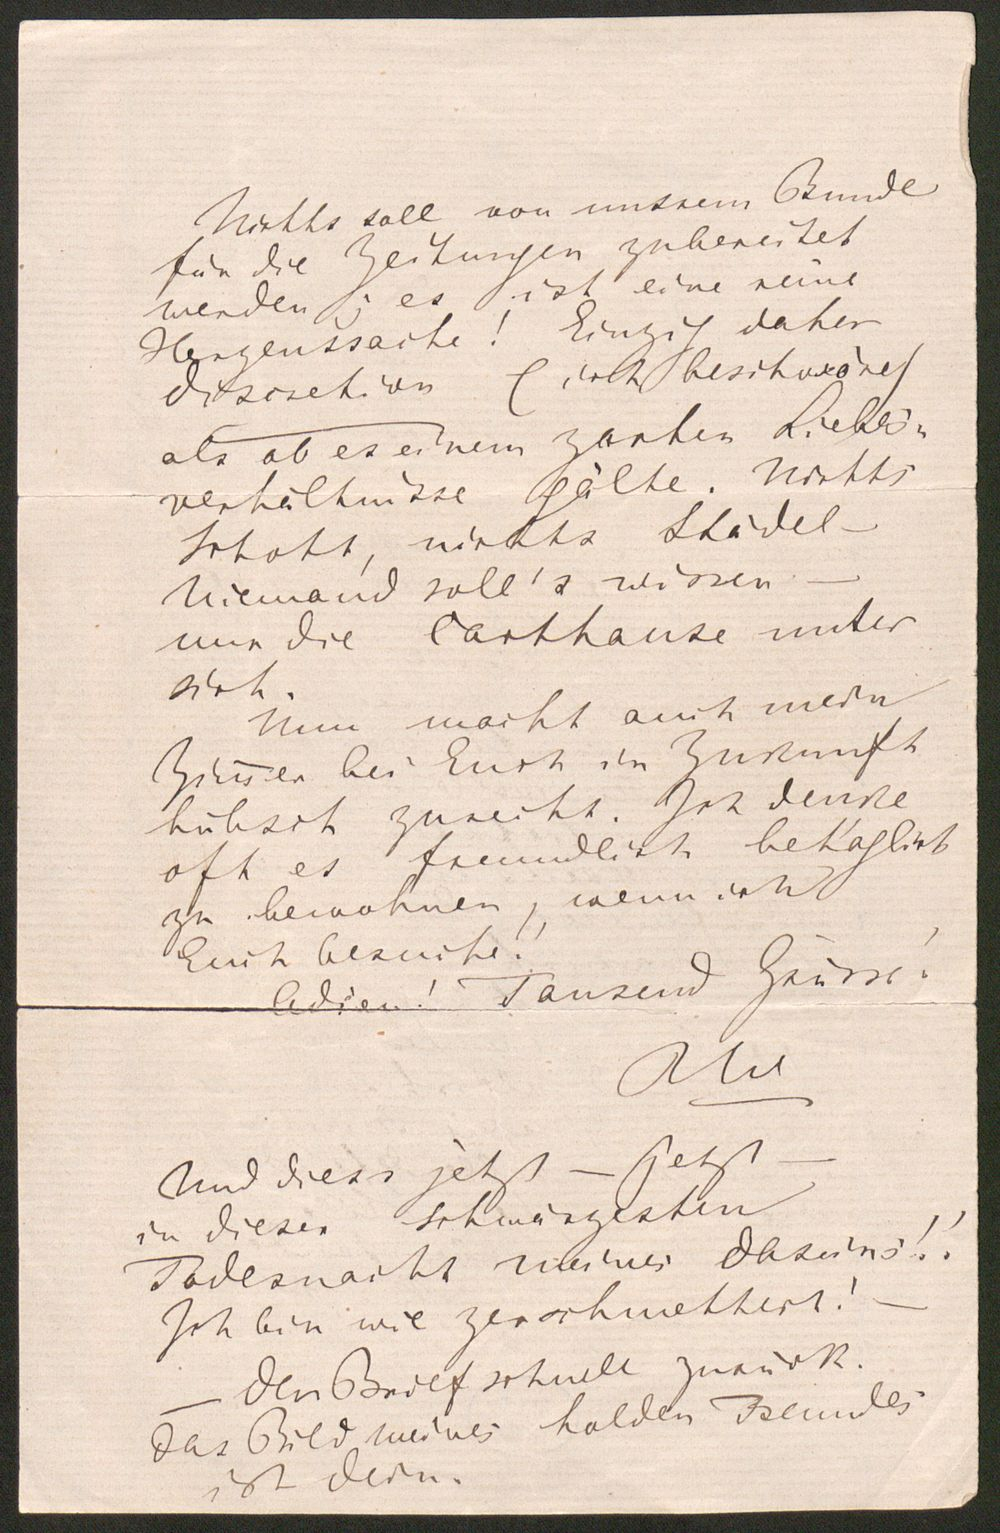 Nichts soll von unsrem Bunde
für die Zeitungen zubereitet
werden; es ist eine reine
Herzenssache! Einzig daher
discretion (ich beschwöre)
als ob es einem zarten Liebes-
verhältnisse gälte. Nichts
Schott, nichts Städel –
Niemand soll's wissen –
nur die Carthause unter
sich.
Nun macht auch mein
Zim̅er bei Euch in Zukunft
hübsch zurecht. Ich denke
oft es freundlich behaglich
zu bewohnen, wenn ich
Euch besuche!
Adieu! Tausend Grüsse!
RW
Und diess jetzt – jetzt –
in dieser schwärzesten
Todesnacht meines Daseins!!
Ich bin wie zerschmettert! –
– Den Brief schnell zurück.
Das Bild meines holden Freundes
ist dein.